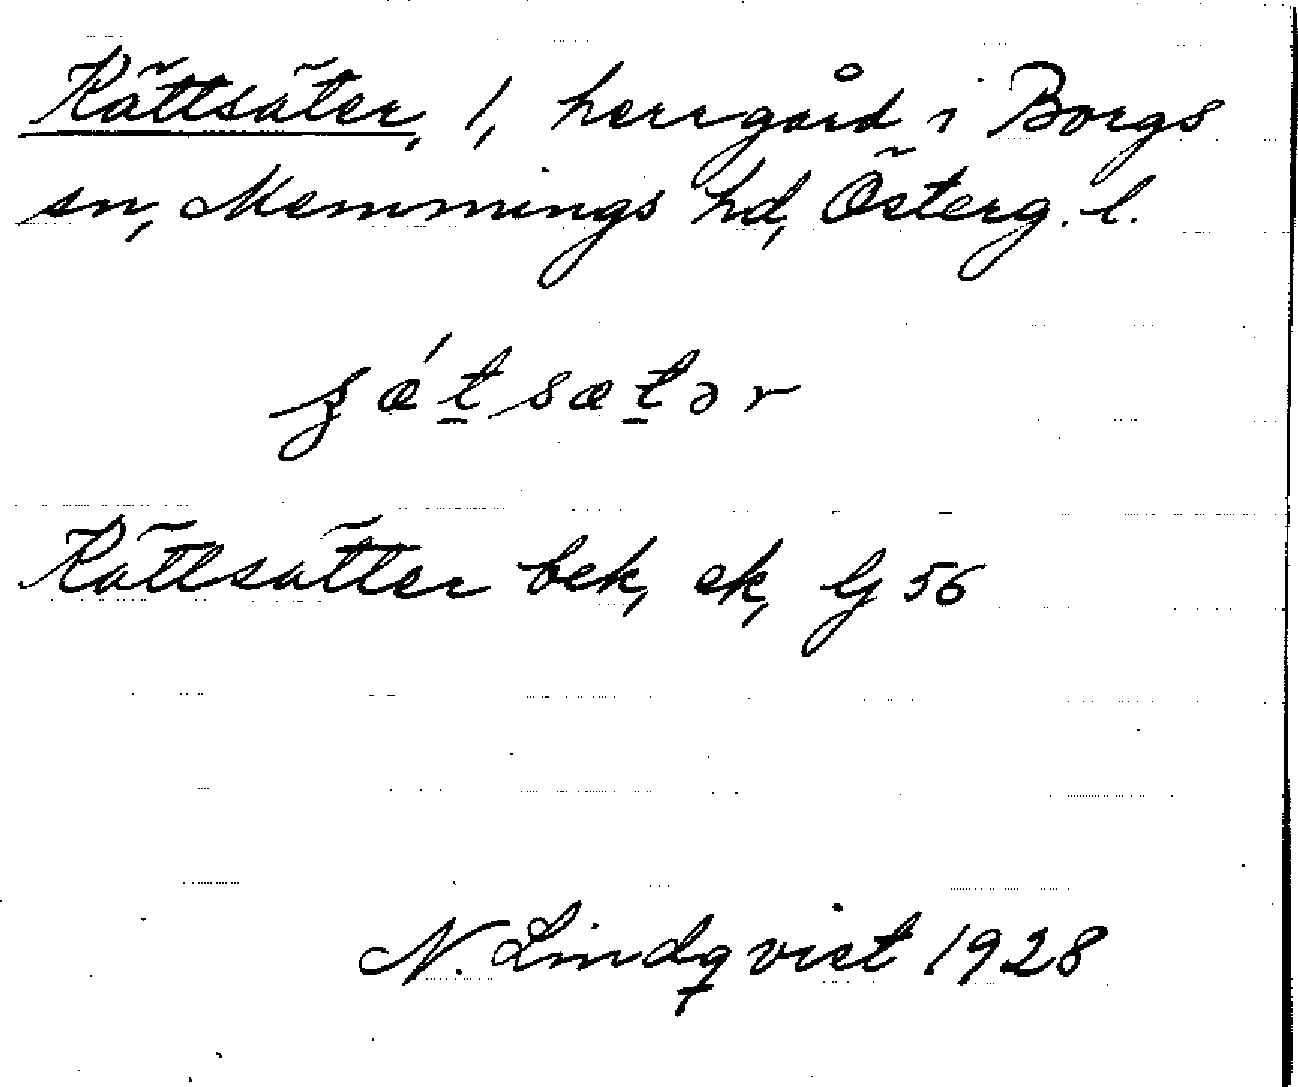 Kättsäter, 1, herrgård i Borgs
sn, Memmings hd, Österg. l.
Kättsätter bek, ek, Gj 56
N. Lindqvist 1928